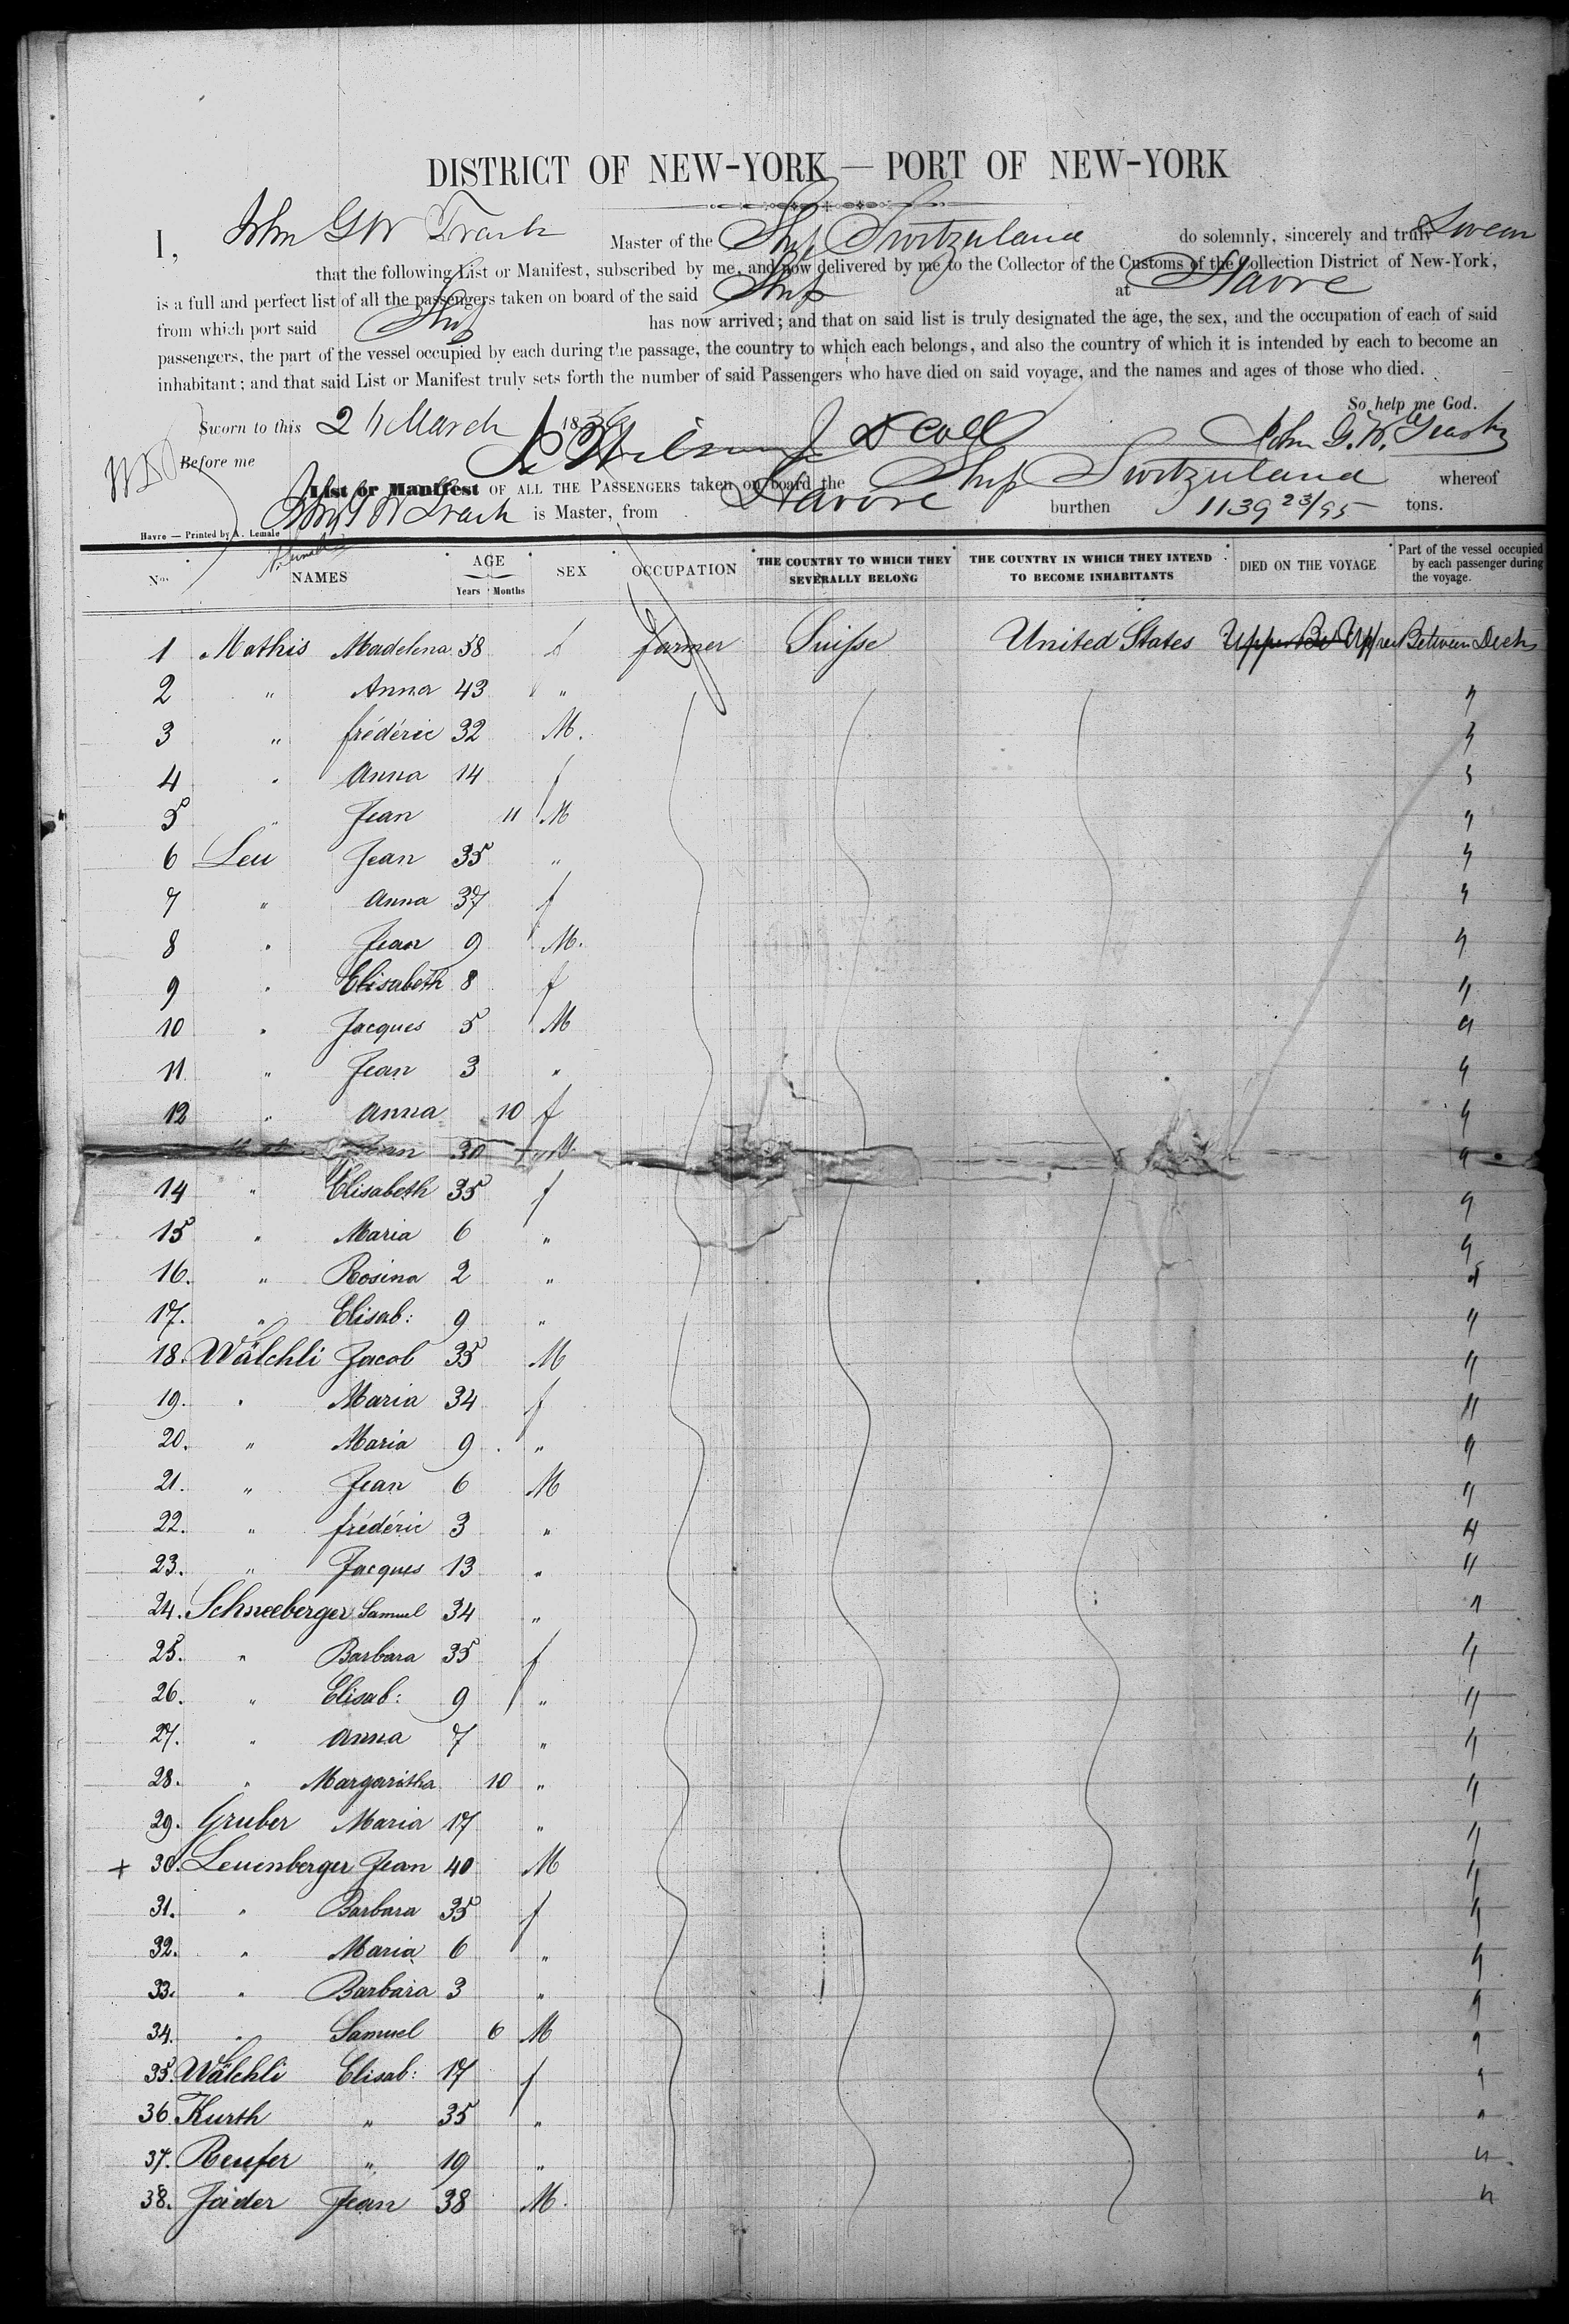 DISTRICT OF NEW-YORK — PORT OF NEW-YORK
I, John G W Trask Master of the Ship Switzerland do solemnly, sincerely and truly Swear
that the following List or Manifest, subscribed by me, and now delivered by me to the Collector of the Customs of the Collection District of New-York,
is a full and perfect list of all the passengers taken on board of the said Ship at Havre
from which port said Ship has now arrived; and that on said list is truly designated the age, the sex, and the occupation of each of said
passengers, the part of the vessel occupied by each during the passage, the country to which each belongs, and also the country of which it is intended by each to become an
inhabitant; and that said List or Manifest truly sets forth the number of said Passengers who have died on said voyage, and the names and ages of those who died.
So help me God.
Sworn to this March 18 John G. W. Trask
Before me
List or Manifest OF ALL THE PASSENGERS taken on board the Ship Switzerland whereof
John G W Trask is Master, from Havre burthen 1139 23/95 tons.
Havre — Printed by A. Lemale
Nos. NAMES AGE Years Months SEX OCCUPATION THE COUNTRY TO WHICH THEY SEVERALLY BELONG THE COUNTRY IN WHICH THEY INTEND TO BECOME INHABITANTS DIED ON THE VOYAGE Part of the vessel occupied by each passenger during the voyage.
1 Mathis Madelena 58 f farmer Suisse United States Upper Between Decks
2 " Anna 43 " "
3 " frédéric 32 M. "
4 " Anna 14 f "
5 " Jean 11 M "
6 Leu Jean 35 " "
7 " Anna 37 f "
8 " Jean 9 M. "
9 " Elisabeth 8 f "
10 " Jacques 5 M "
11 " Jean 3 " "
12 " Anna 10 f "
Jean 30 M "
14 " Elisabeth 35 f "
15 " Maria 6 " "
16. " Rosina 2 " "
17. " Elisab: 9 " "
18. Wälchli Jacob 35 M "
19. " Maria 34 f "
20. " Maria 9 " "
21. " Jean 6 M "
22. " frédéric 3 " "
23. " Jacques 13 " "
24. Schneeberger Samuel 34 " "
25. " Barbara 35 f "
26. " Elisab: 9 " "
27. " Anna 7 " "
28. " Margaritha 10 " "
29. Gruber Maria 17 " "
+ 30. Leuenberger Jean 40 M "
31. " Barbara 35 f "
32. " Maria 6 " "
33. " Barbara 3 " "
34. " Samuel 6 M "
35. Wälchli Elisab: 17 f "
36. Kurth " 35 " "
37. Reufer " 19 " "
38. Jäder Jean 38 M. "